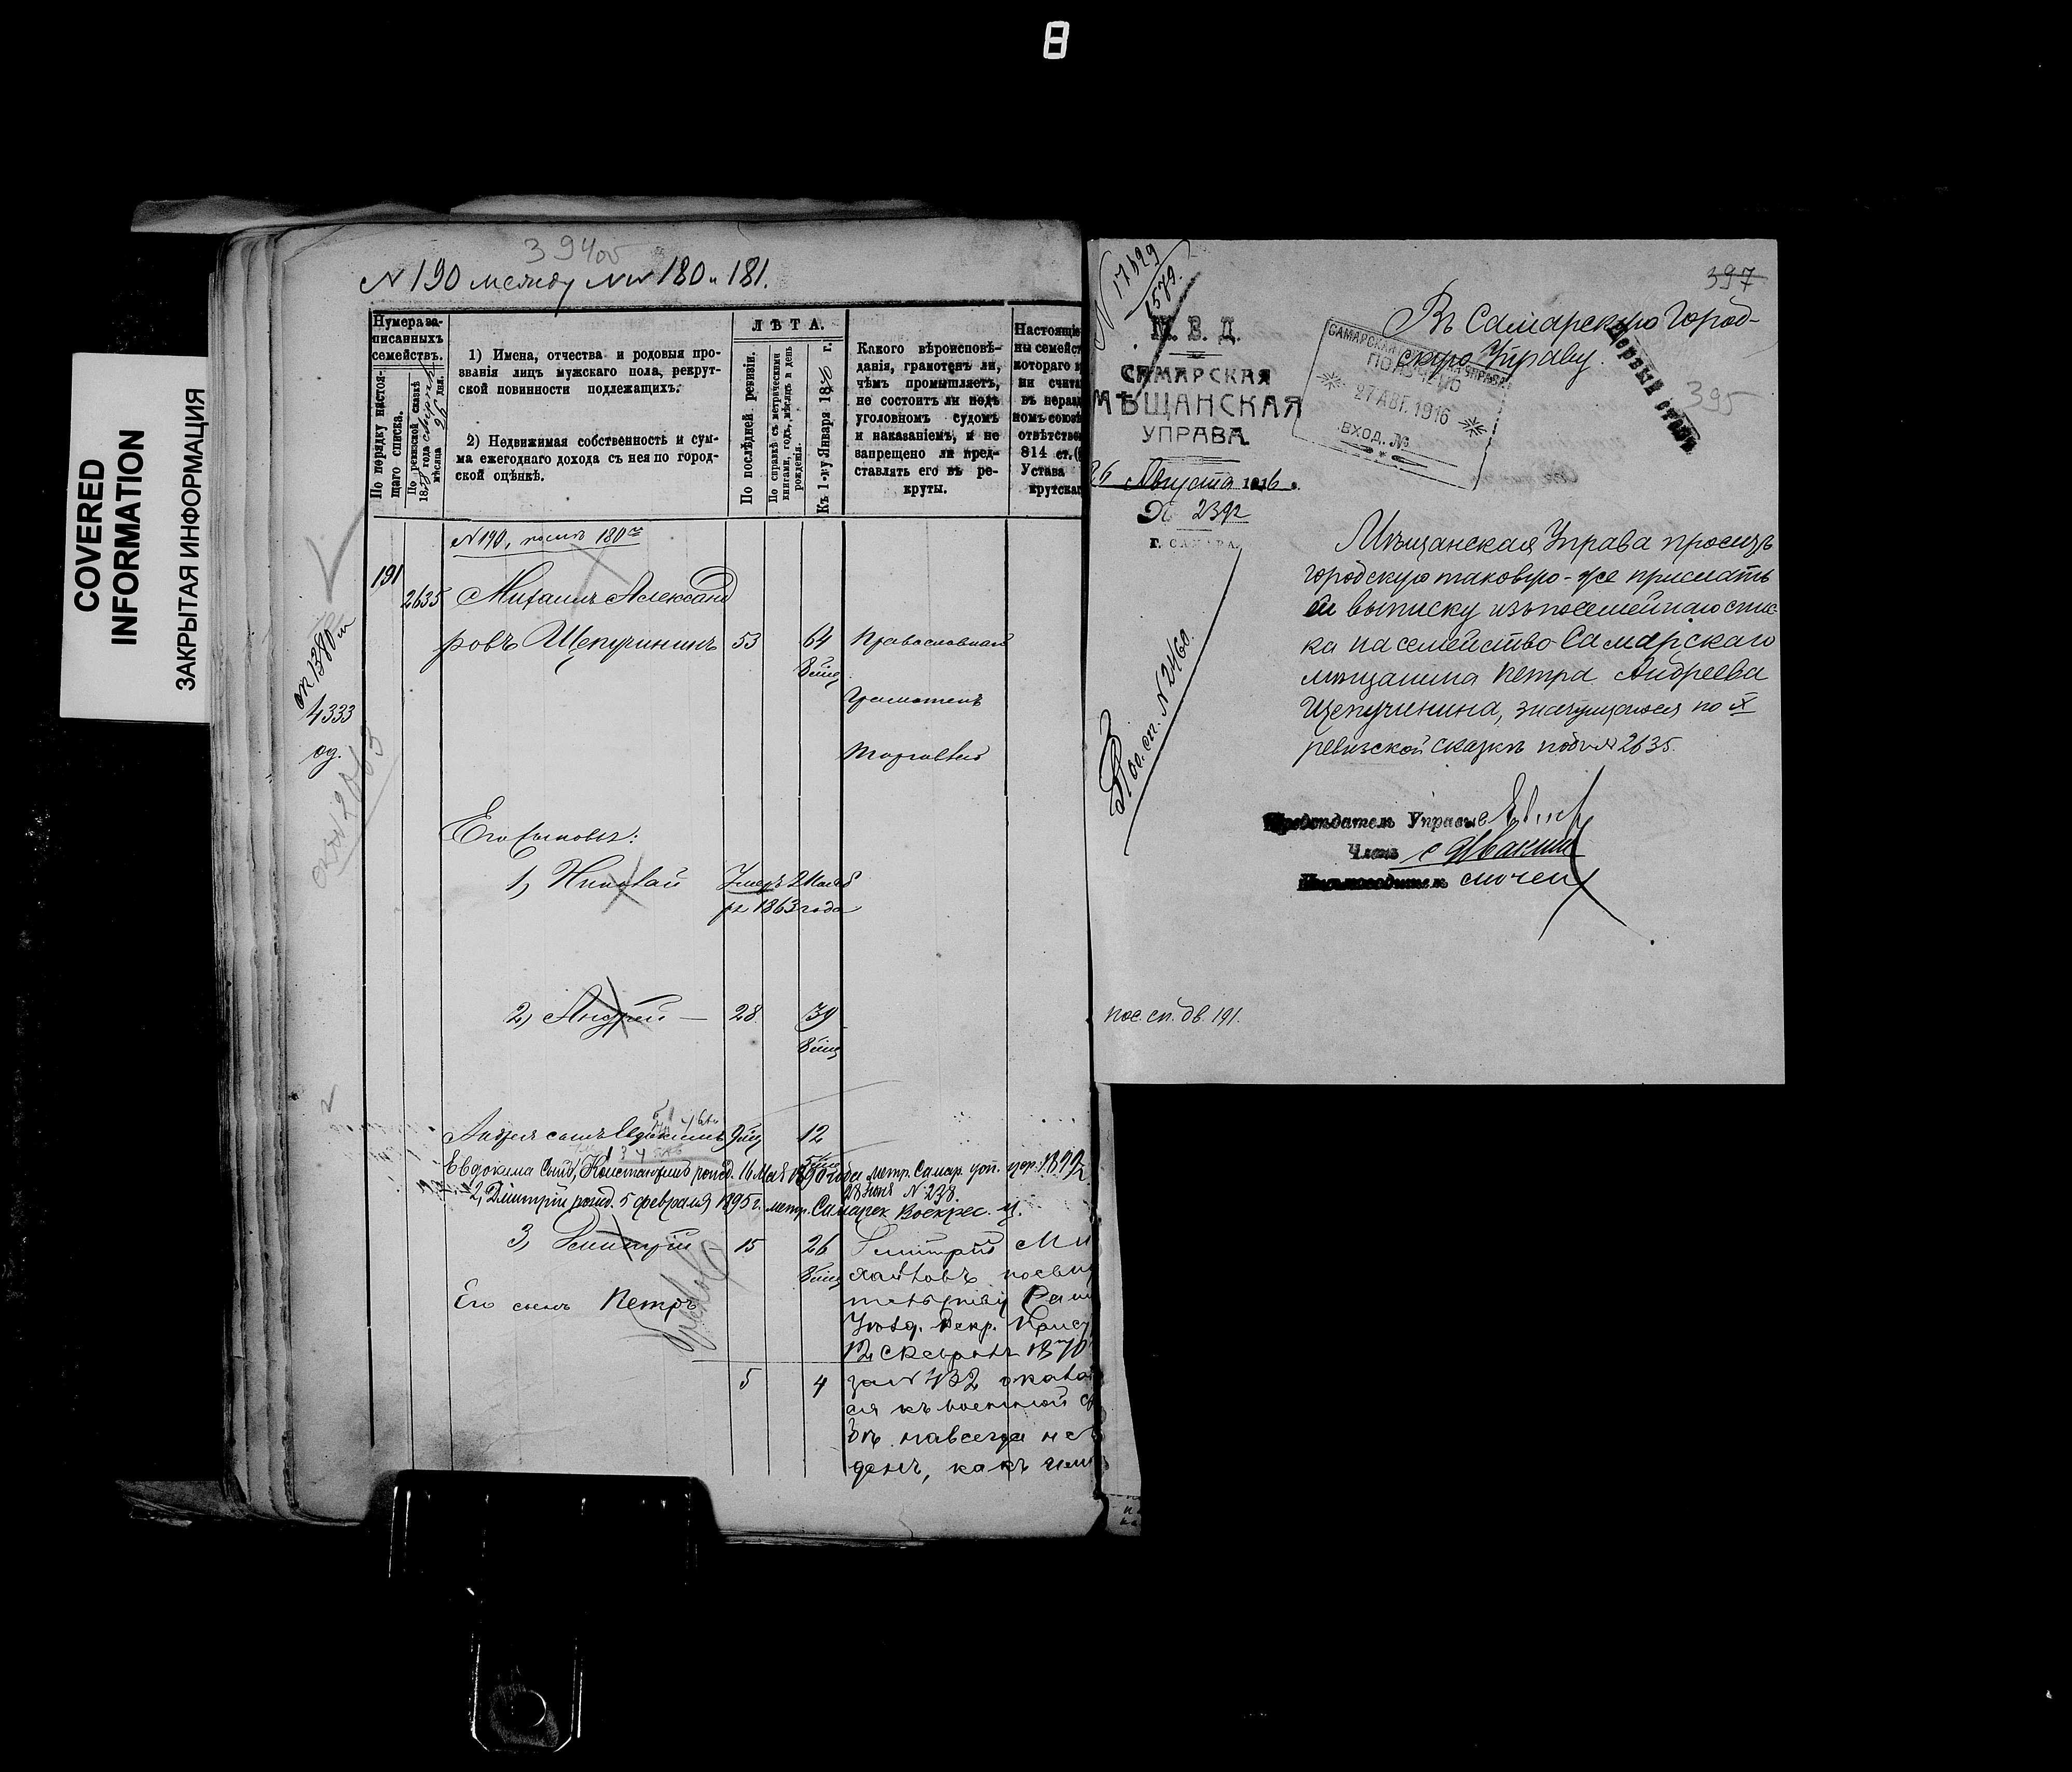 8
COVERED
INFORMATION
ЗАКРЫТАЯ ИНФОРМАЦИЯ
39400
N 190 между NN 180 и 181.
Нумера за-
писанныхъ
семействъ.
По порядку настоя-
щаго списка.
По ревизской сказкѣ
18 года
мѣсяца 26 дня.
1) Имена, отчества и родовыя про-
званія лицъ мужскаго пола, рекрут-
ской повинности подлежащихъ.
2) Недвижимая собственность и сум-
ма ежегоднаго дохода съ нея по город-
ской оцѣнкѣ.
ЛѢТА.
По послѣдней ревизіи.
По справкѣ съ метрическими
книгами, годъ, мѣсяцъ и день
рожденія.
Къ 1-му Января 18 г.
Какого вѣроисповѣ-
данія, грамотенъ ли,
чѣмъ промышляетъ,
не состоитъ ли подъ
уголовномъ судомъ
и наказаніемъ, и не
запрещено ли пред-
ставлять его въ ре-
круты.
Настоящіе
ны семейст
котораго
ни счита
въ нераз
номъ союз
отвѣтстве
814 ст.
Устава
крутска
N 190, послѣ 180го
191
2635 Михаилъ Александ
ровъ Щепучининъ 53 64 Православный
Грамотенъ
Торговлей
сп 1380
4333
од.
Его сыновья:
1) Николай Умеръ 2 Нояб
ря 1863 года
2) Андрей — 28 39
Андрея сынъ Евдокимъ 12
Евдокима сынъ, Константинъ рожд. 16 Мая 1890 года метр. Самар. усп. цер. 1892
28 Іюня N 238.
2, Дмитрій рожд. 5 февраля 1895 г. метр. Самарск Воскрес. ц.
3) Дмитрій 15 26 Дмитрій Ми
хайловъ
Его сынъ Петръ
Уѣзд. Рекр. Прису
12 Февраля 1870
5 4 за N 432 оказа
ся къ военной
бѣ навсегда не
денъ, какъ
N 17429
1579.
М. В. Д.
САМАРСКАЯ
МѢЩАНСКАЯ
УПРАВА
26 Августа 1916 г.
№ 2392
Г. САМАРА.
Пос. сп. N 2460.
397
Въ Самарскую Город-
скую Управу.
САМАРСКАЯ УПРАВА
ПОЛУЧЕНО
27 АВГ. 1916
ВХОД. №
Первый столъ
395
Мѣщанская Управа проситъ
городскую таковую-же прислать
ей выписку изъ посемейнаго спис
ка на семейство Самарскаго
мѣщанина Петра Андреева
Щепучинина, значущагося по X
ревизской сказкѣ подъ N 2635.
Предсѣдатель Управы
Членъ
Письмоводитель
пос. сп. дв. 191.